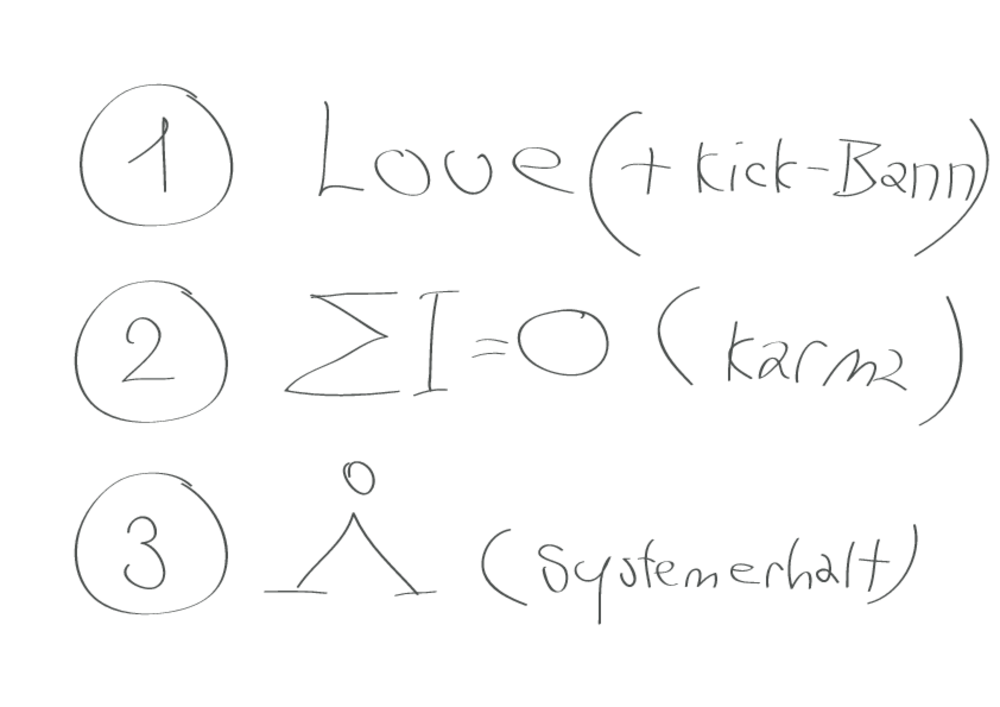 1 Love (+ Kick-Bann)
2 ΣI = 0 (Karma)
3 Å (Systemerhalt)